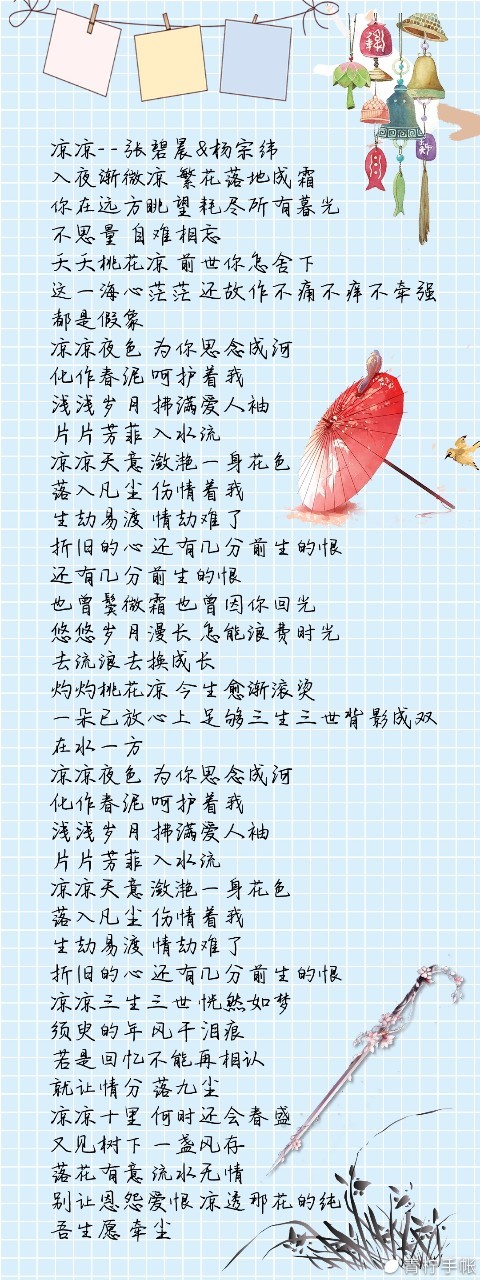 凉凉--张碧晨&杨宗纬
入夜渐微凉 繁花落地成霜
你在远方眺望 耗尽所有暮光
不思量 自难相忘
夭夭桃花凉 前世你怎舍下
这一海心茫茫 还故作不痛不痒不牵强
都是假象
凉凉夜色 为你思念成河
化作春泥 呵护着我
浅浅岁月 拂满爱人袖
片片芳菲 入水流
凉凉天意 潋滟一身花色
落入凡尘 伤情着我
生劫易渡 情劫难了
折旧的心 还有几分前生的恨
还有几分前生的恨
也曾鬓微霜 也曾因你回光
悠悠岁月漫长 怎能浪费时光
去流浪去换成长
灼灼桃花凉 今生愈渐滚烫
一朵已放心上 足够三生三世背影成双
在水一方
凉凉夜色 为你思念成河
化作春泥 呵护着我
浅浅岁月 拂满爱人袖
片片芳菲 入水流
凉凉天意 潋滟一身花色
落入凡尘 伤情着我
生劫易渡 情劫难了
折旧的心 还有几分前生的恨
凉凉三生三世 恍然如梦
须臾的年 风干泪痕
若是回忆不能再相认
就让情分 落九尘
凉凉十里 何时还会春盛
又见树下 一盏风存
落花有意 流水无情
别让恩怨爱恨 凉透那花的纯
吾生愿 牵尘
青柠手帐